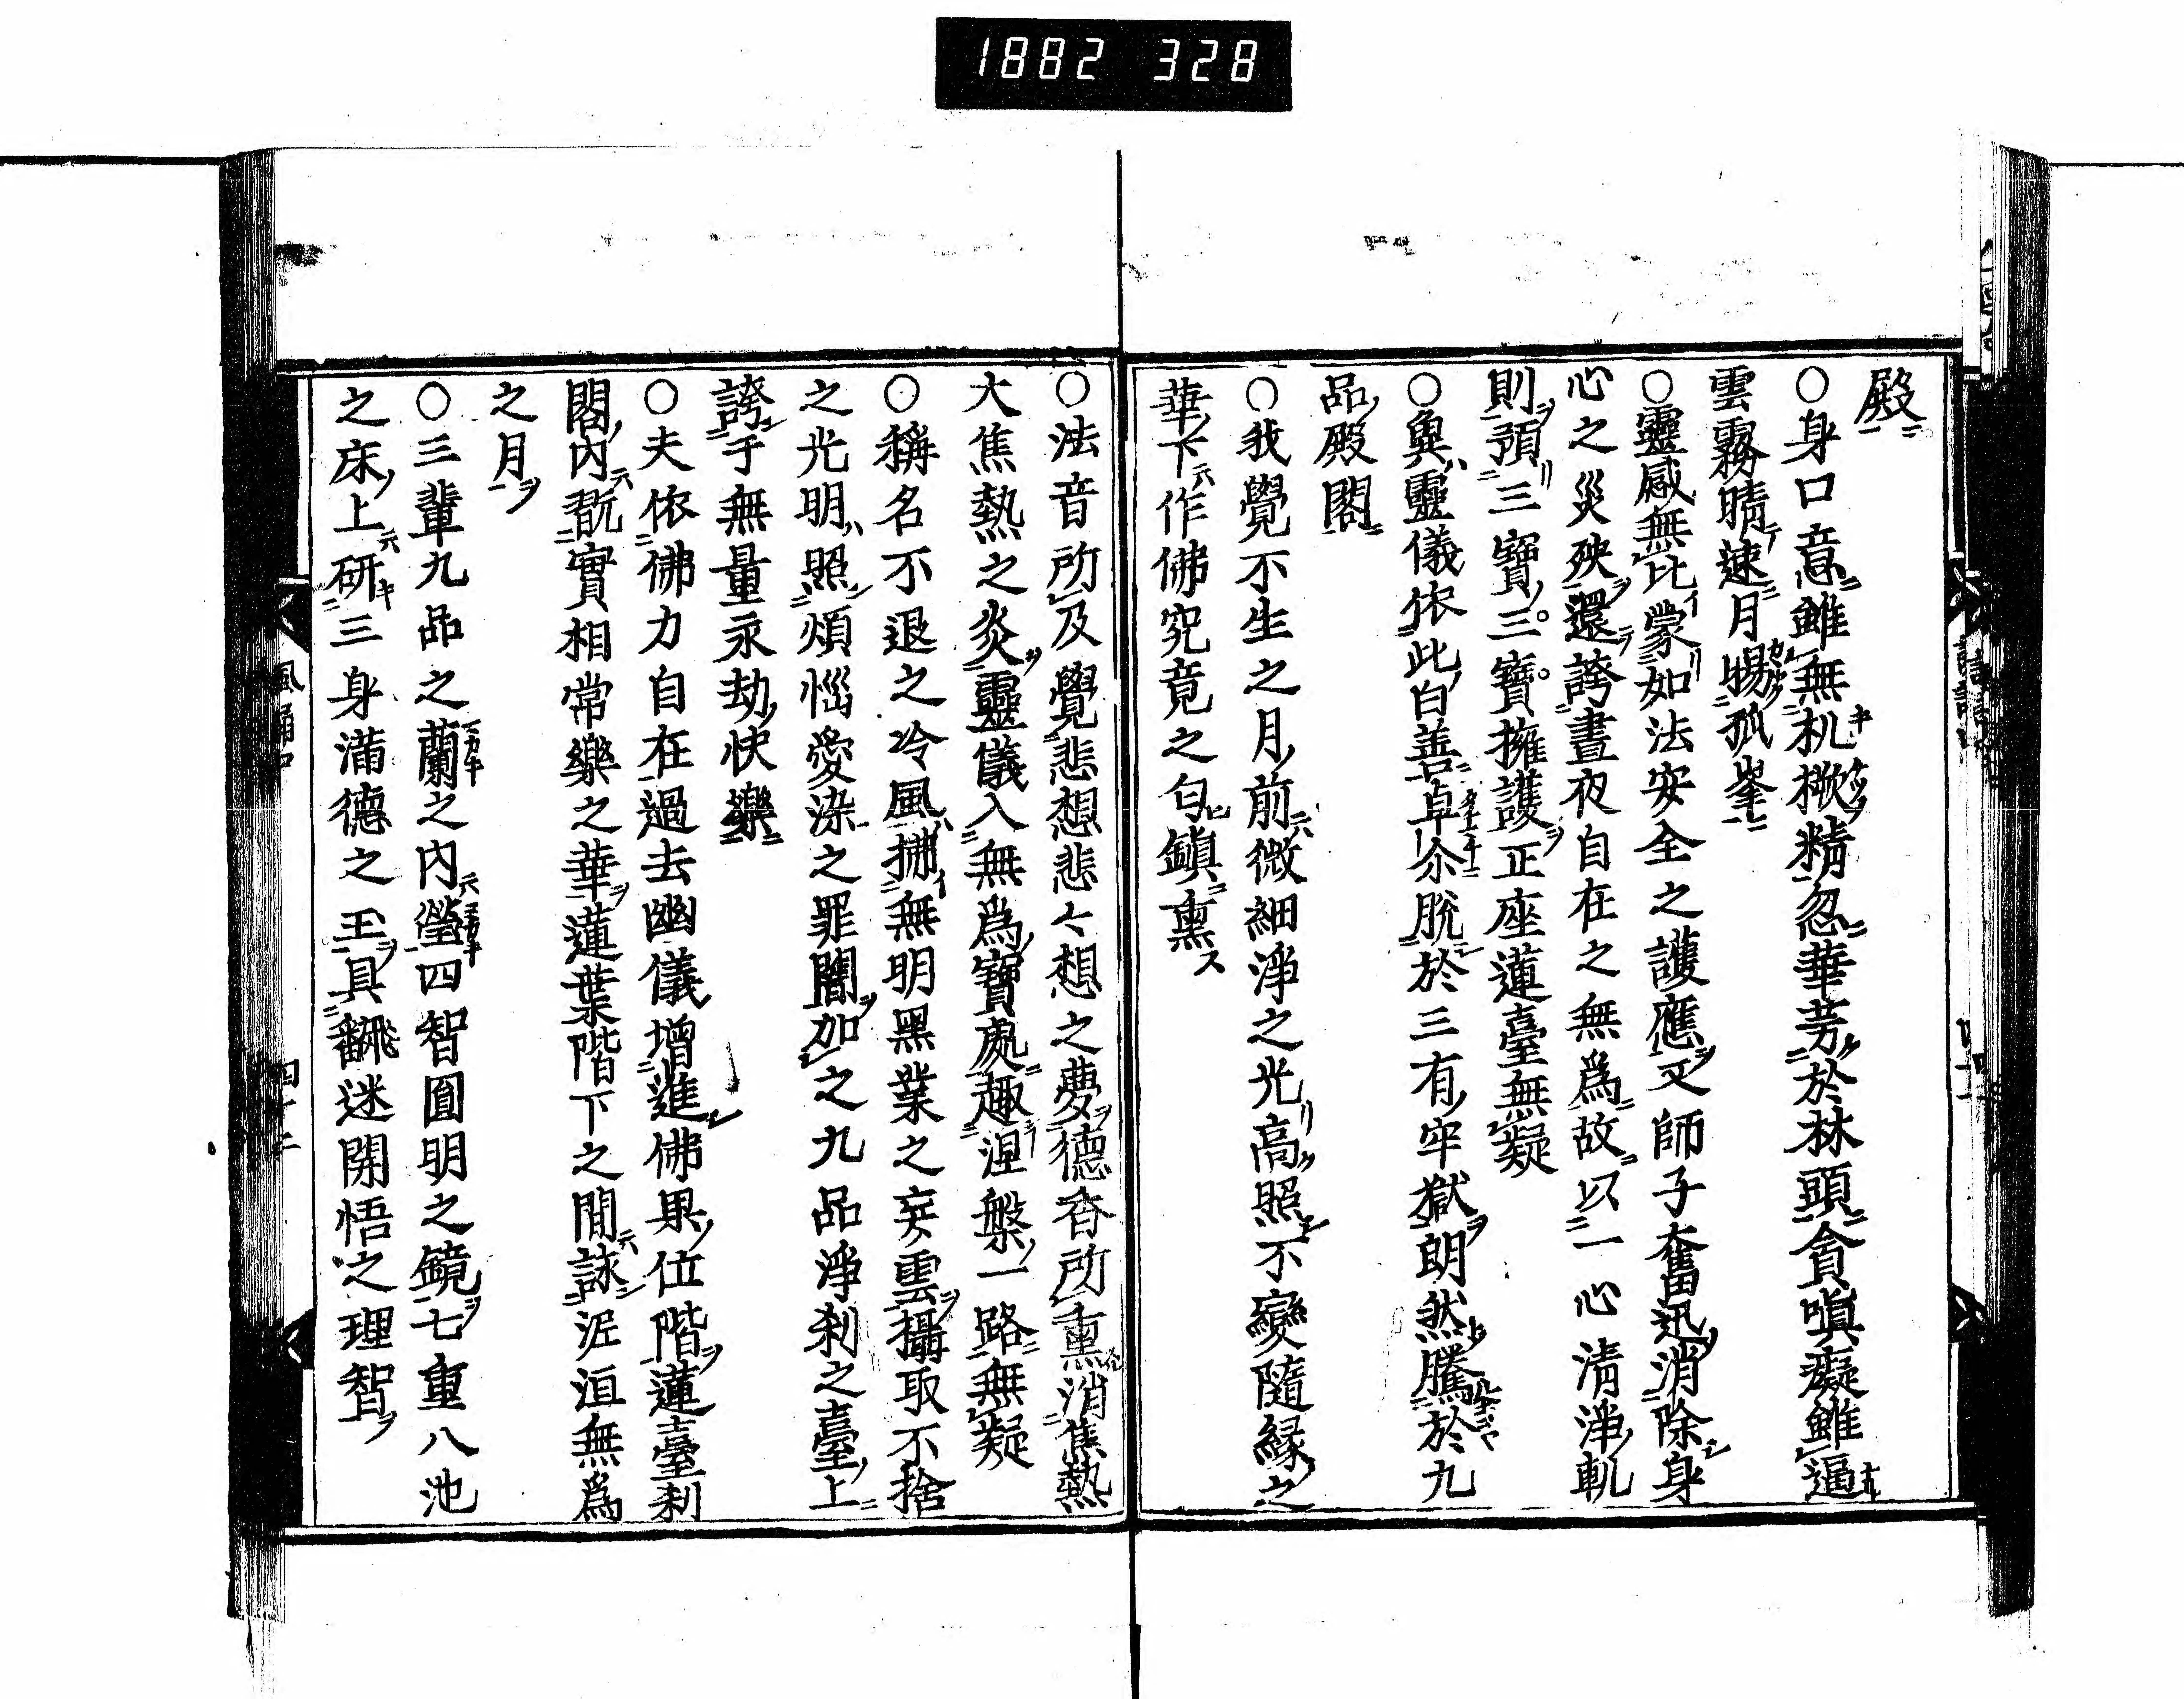 1882 328
殿
○身口意雖無机橛精忽華芳於林頭貪嗔癡雖逼
雲霧晴速月賜孤峯
○靈感無比蒙如法安全之護應又師子奮迅消除身
心之災殃還誇晝夜自在之無爲故以一心清淨軌
則預三寶三寶擁護正座蓮臺無疑
○奠靈儀依此白善卓尒脱於三有牢獄朗然騰於九
品殿閣
○我覺不生之月前微細淨之光高照不變隨縁之
華下作佛究竟之匂鎮熏
○法音所及覺悲想悲々想之夢德香所熏消焦熱
大焦熱之炎靈儀入無爲寶處趣涅槃一路無疑
○稱名不退之冷風拂無明黑業之妄雲攝取不捨
之光明照煩惱愛染之罪闇加之九品淨刹之臺上
誇于無量永劫快樂
○夫依佛力自在過去幽儀增進佛果位階蓮臺刹
閣內翫實相常樂之華蓮葉階下之間詠泥洹無爲
之月
○三輩九品之蘭之內瑩四智圓明之鏡七重八池
之床上研三身滿德之玉具飜迷開悟之理智
四十二